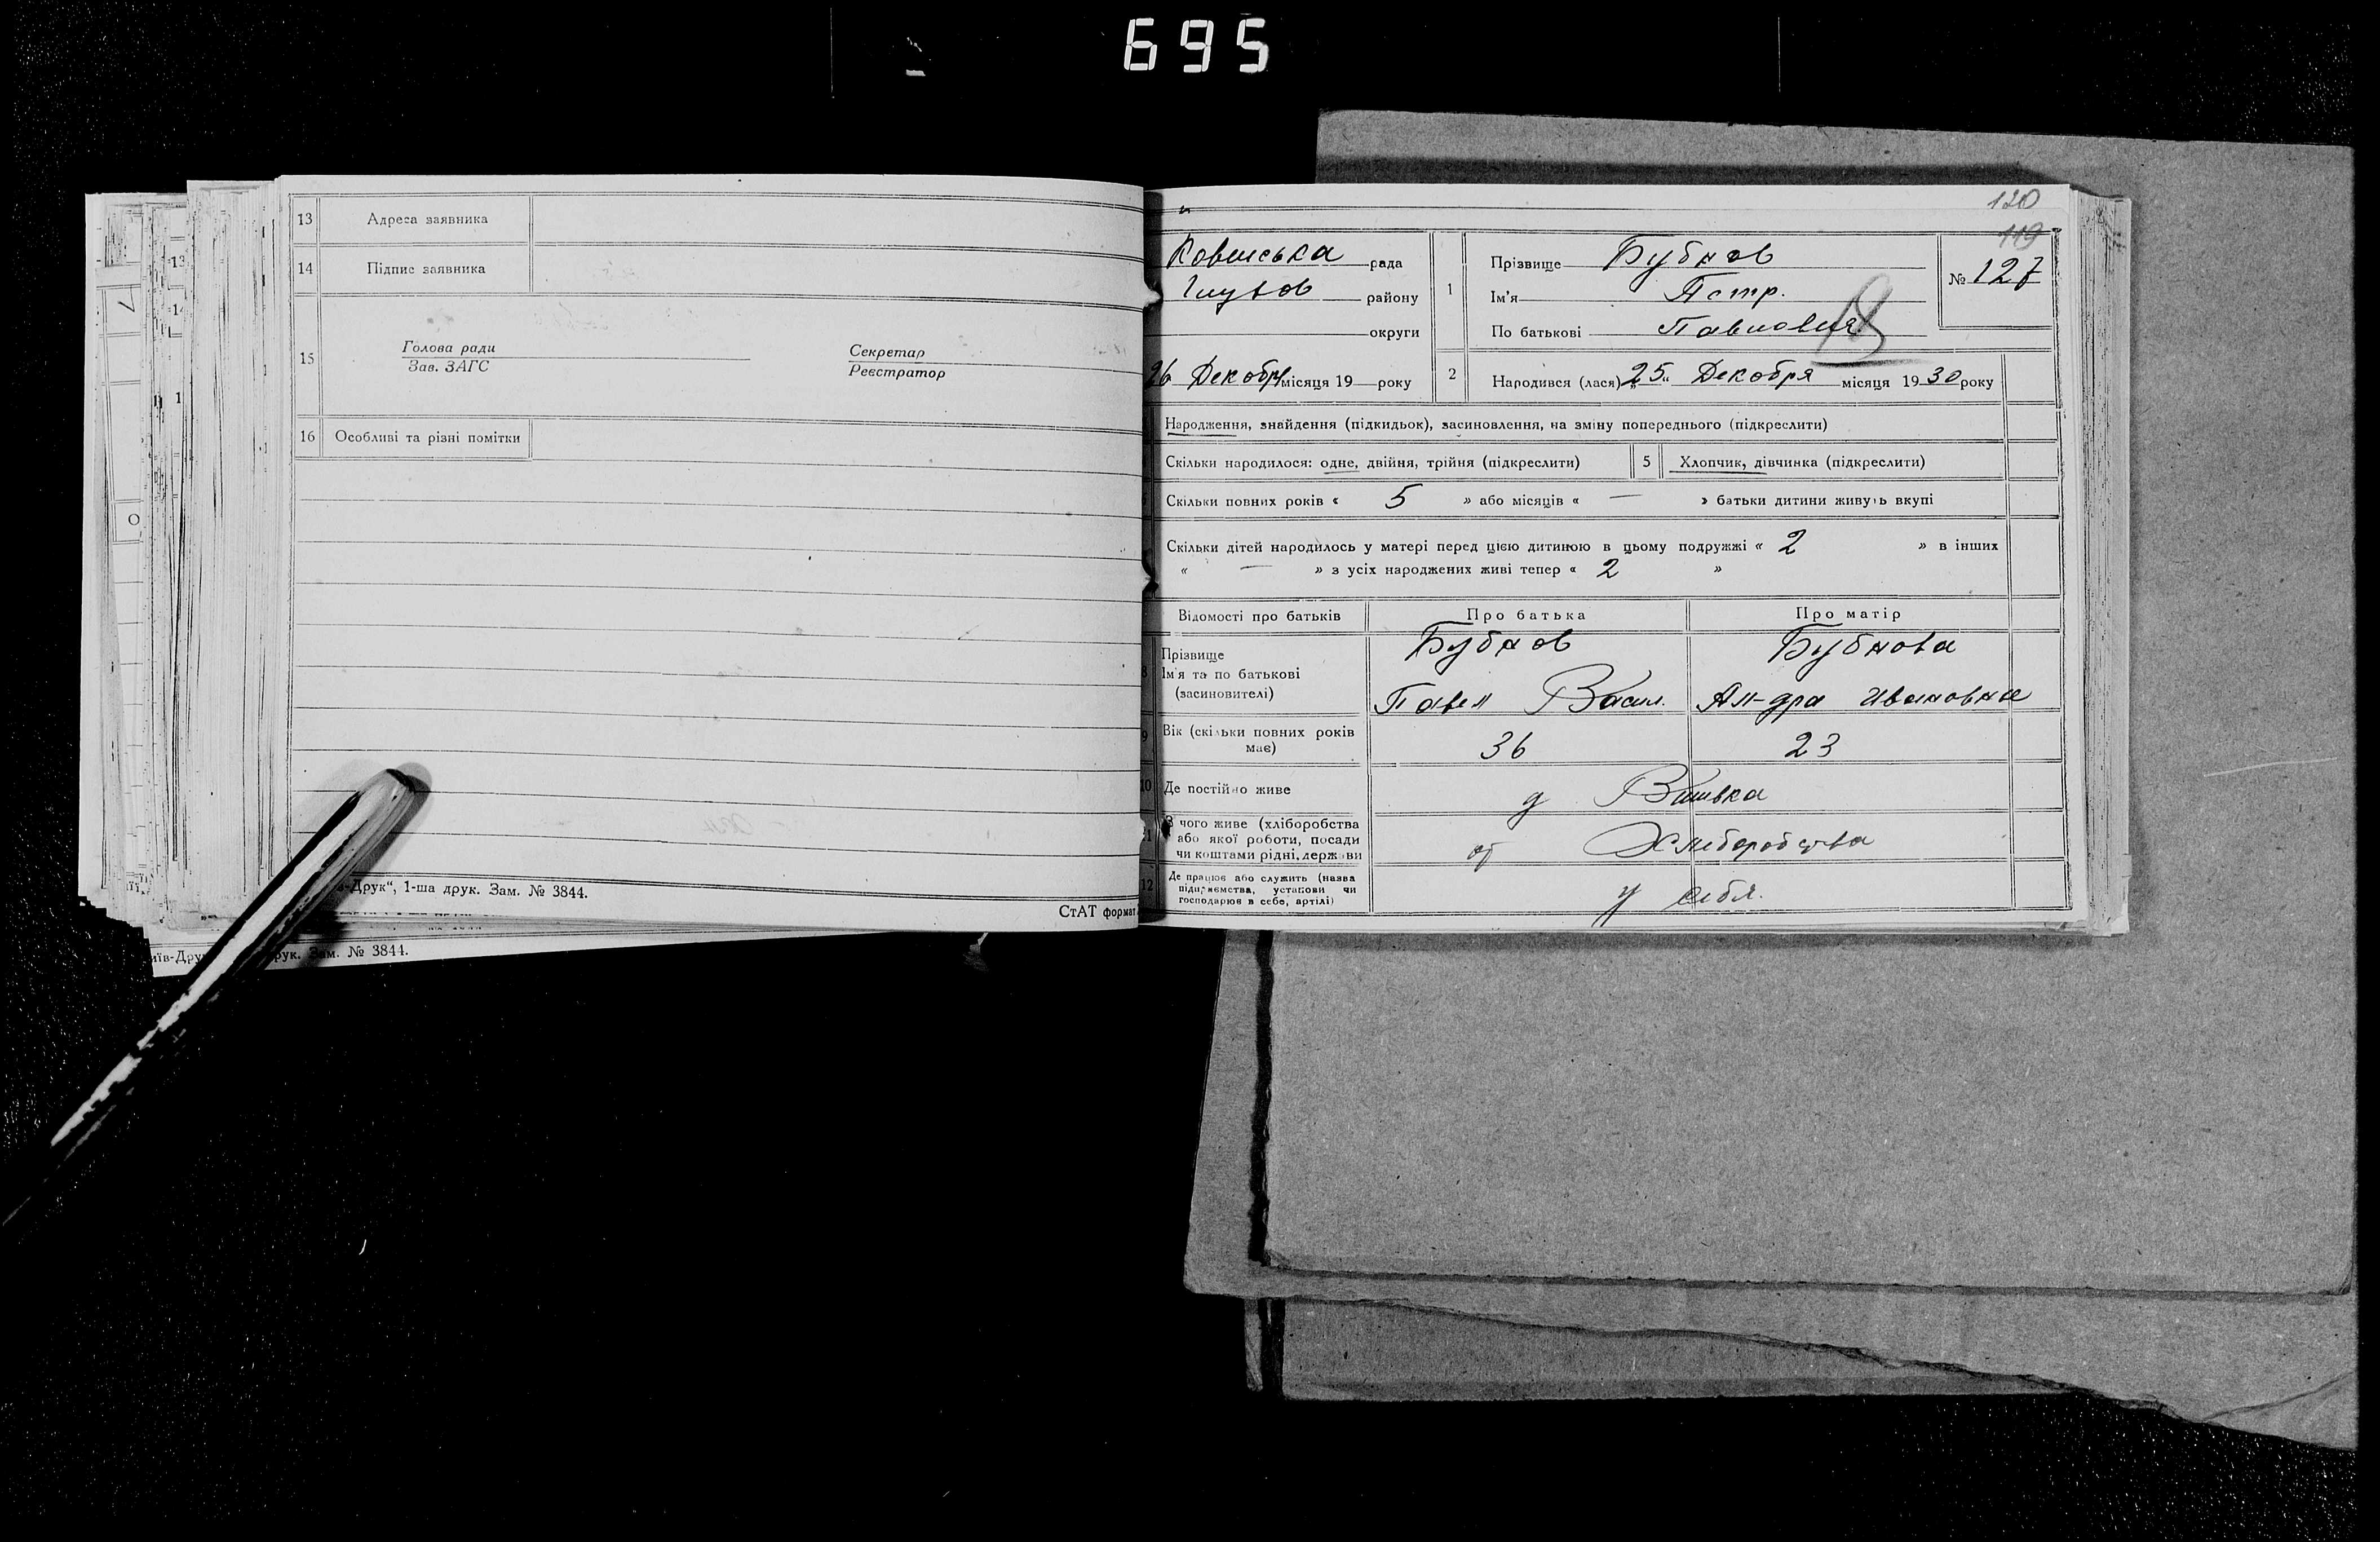 695
13 Адреса заявника
14 Підпис заявника
15 Голова ради Секретар
Зав. ЗАГС Реєстратор
16 Особливі та різні помітки
-Друк“, 1-ша друк. Зам. № 3844.
СтАТ формат
Зам. № 3844.
120
119
рада
Глухов району
округи
26 Декобря місяця 19 року
1 Прізвище Бубнов
Ім'я
По батькові
№ 127
2 Народився (лася) „25“ Декобря місяця 1930 року
Народження, знайдення (підкидьок), засиновлення, на зміну попереднього (підкреслити)
Скільки народилося: одне, двійня, трійня (підкреслити) 5 Хлопчик, дівчинка (підкреслити)
Скільки повних років « 5 » або місяців « — » батьки дитини живуть вкупі
Скільки дітей народилось у матері перед цією дитиною в цьому подружжі « 2 » в інших
« — » з усіх народжених живі тепер « 2 »
Відомості про батьків Про батька Про матір
8 Прізвище Бубнов Бубнова
Ім'я та по батькові
(засиновителі) Павел Васил. Ал-дра Ивановна
9 Вік (скільки повних років
має) 36 23
10 Де постійно живе д
11 З чого живе (хліборобства
або якої роботи, посади
чи коштами рідні, держави от Хлиборобства
12 Де працює або служить (назва
підприємства, установи чи
господарює в себе, артілі) у себя.